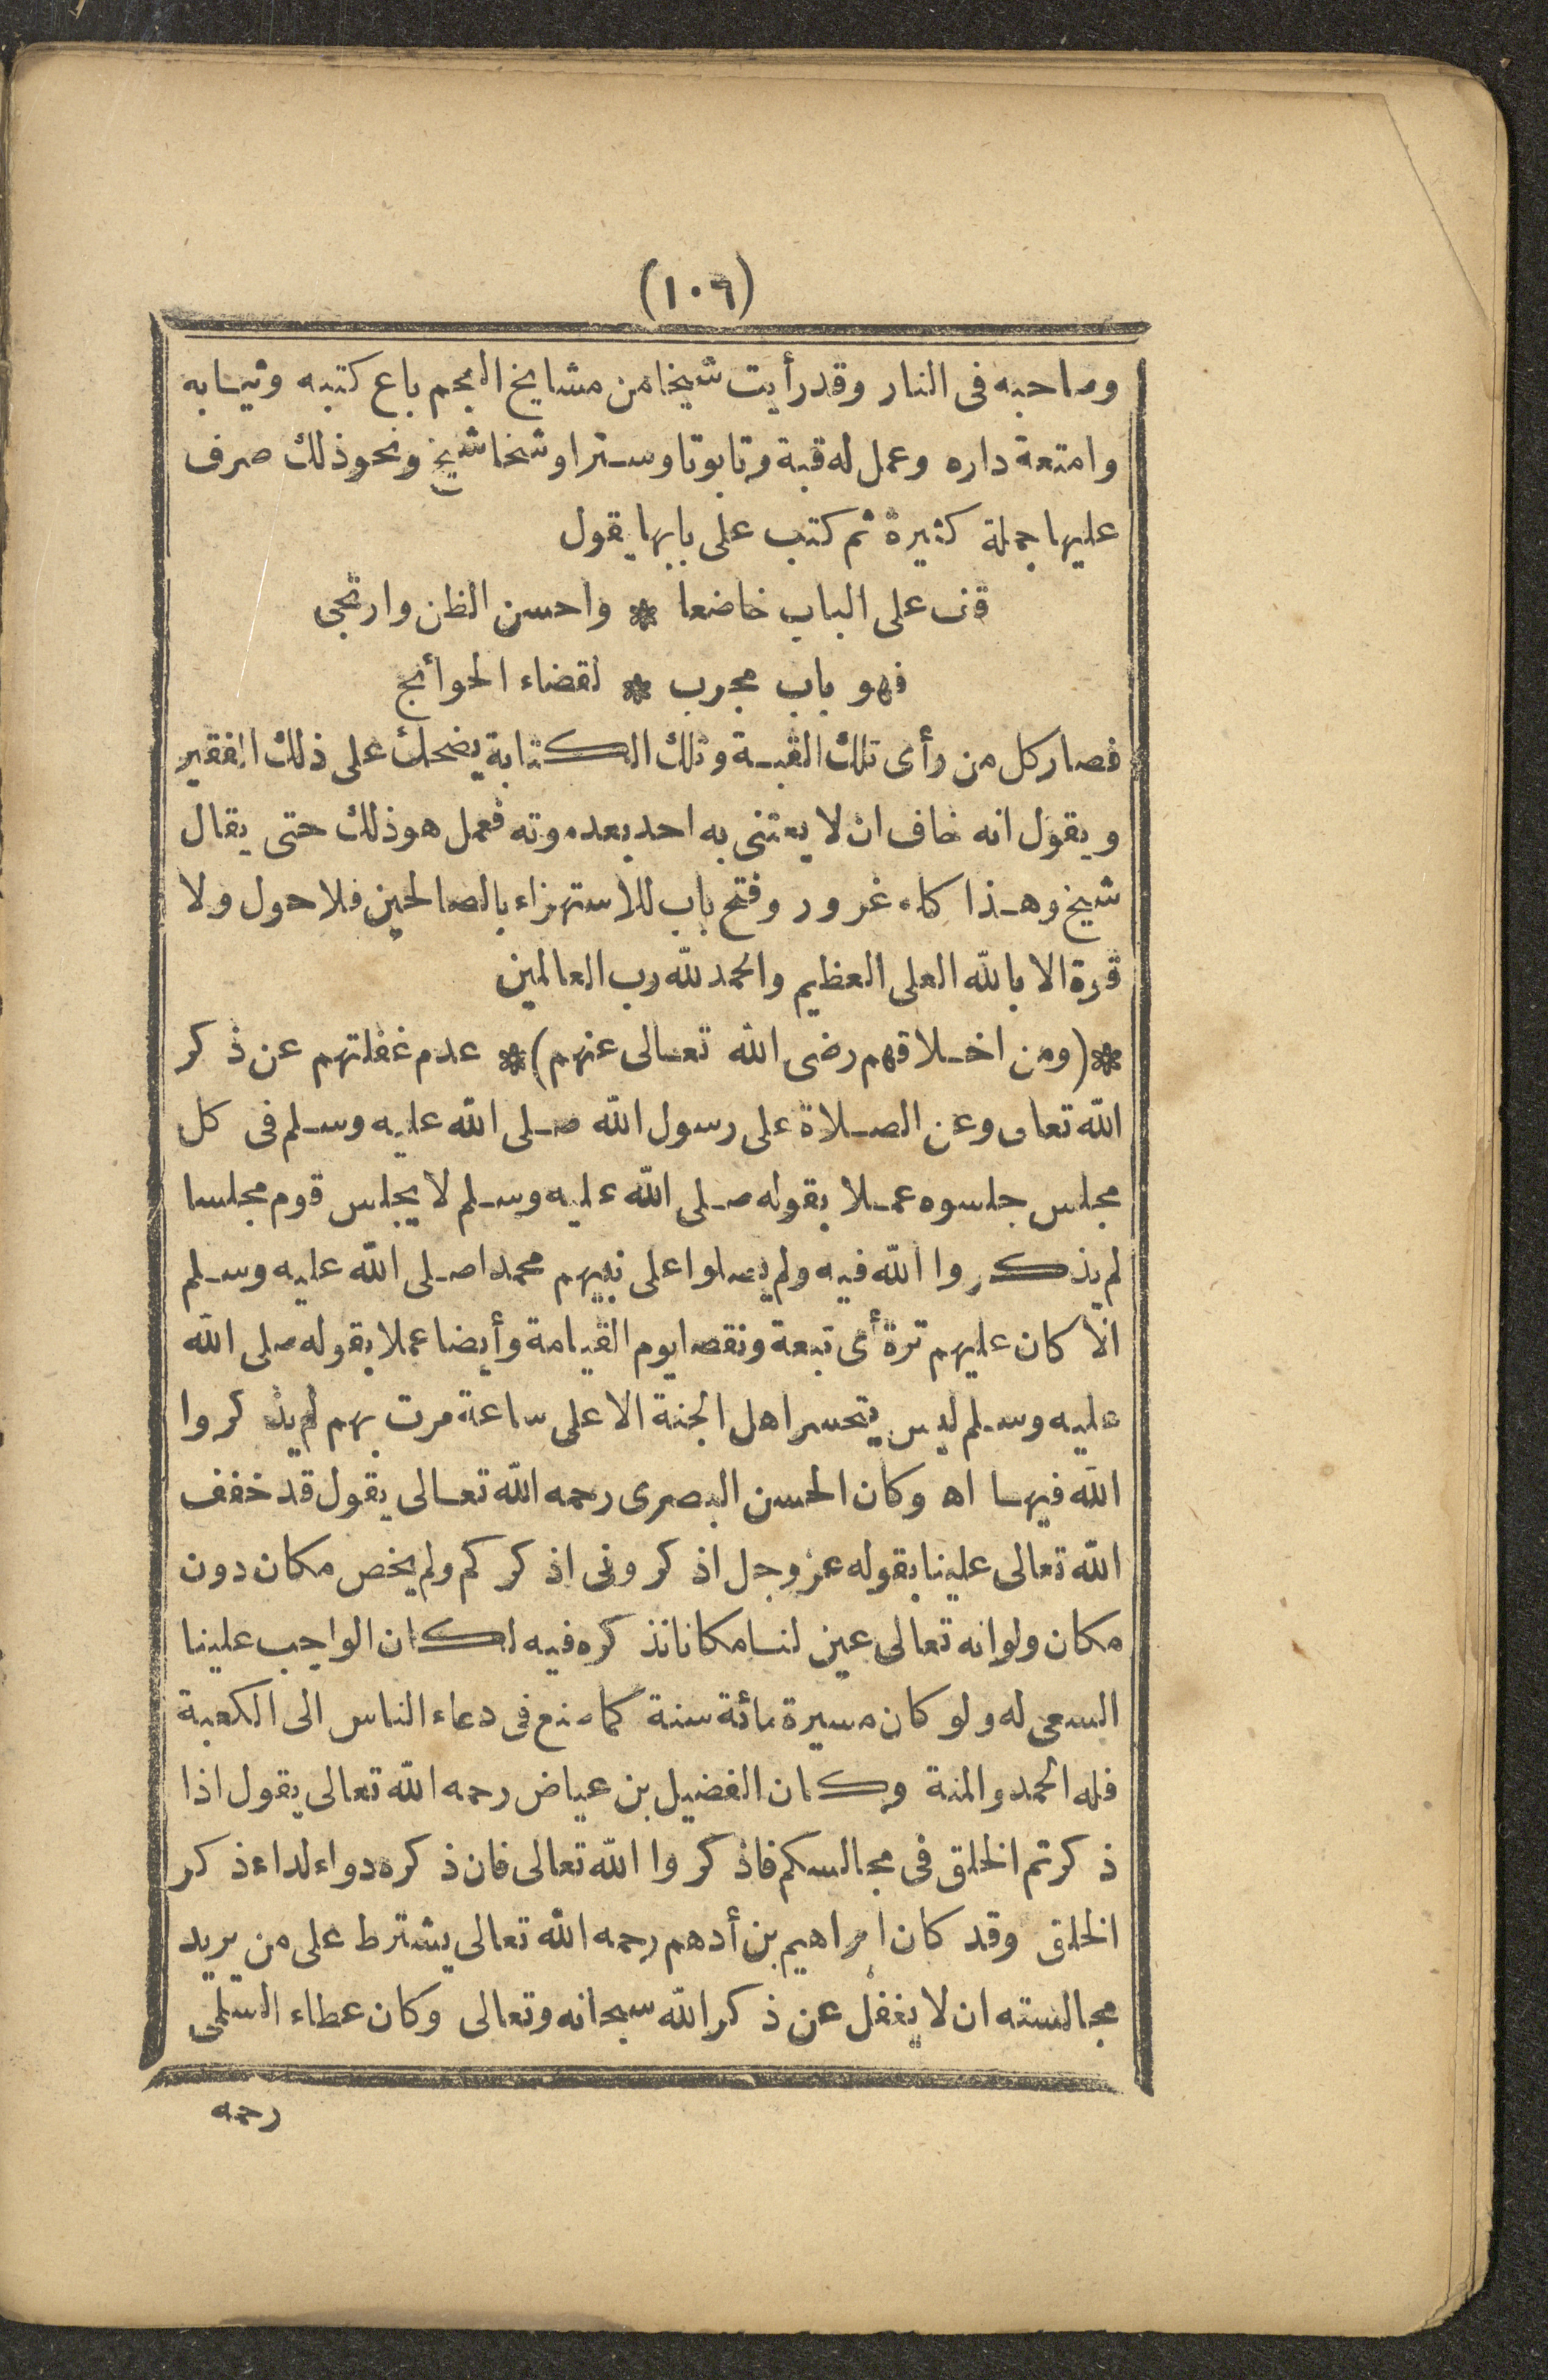 (١٠٦)
وصاحبه فى النار وقد رأيت شيخا من مشايخ العجم باع كتبه وثيابه
وامتعة داره وعمل له قبة وتابوتا وسترا وشخاشيخ ونحو ذلك صرف
عليها جملة كثيرة ثم كتب على بابها يقول
قف على الباب خاضعا * واحسن الظن وارتجى
فهو باب مجرب * لقضاء الحوائج
فصار كل من رأى تلك القبة وتلك الكتابة يضحك على ذلك الفقير
ويقول انه خاف ان لا يعتنى به احد بعد موته فعمل هو ذلك حتى يقال
شيخ وهذا كله غرور وفتح باب للاستهزاء بالصالحين فلا حول ولا
قوة الا بالله العلى العظيم والحمد لله رب العالمين
*(ومن اخلاقهم رضى الله تعالى عنهم)* عدم غفلتهم عن ذكر
الله تعالى وعن الصلاة على رسول الله صلى الله عليه وسلم فى كل
مجلس جلسوه عملا بقوله صلى الله عليه وسلم لا يجلس قوم مجلسا
لم يذكروا الله فيه ولم يصلوا على نبيهم محمد صلى الله عليه وسلم
الا كان عليهم ترة أى تبعة ونقصا يوم القيامة وأيضا عملا بقوله صلى الله
عليه وسلم ليس يتحسر اهل الجنة الا على ساعة مرت بهم لم يذكروا
الله فيها اه وكان الحسن البصرى رحمه الله تعالى يقول قد خفف
الله تعالى علينا بقوله عز وجل اذكرونى اذكركم ولم يخص مكان دون
مكان ولو انه تعالى عين لنا مكانا نذكره فيه لكان الواجب علينا
السعى له ولو كان مسيرة مائة سنة كما صنع فى دعاء الناس الى الكعبة
فله الحمد والمنة وكان الفضيل بن عياض رحمه الله تعالى يقول اذا
ذكرتم الخلق فى مجالسكم فاذكروا الله تعالى فان ذكره دواء لداء ذكر
الخلق وقد كان ابراهيم بن أدهم رحمه الله تعالى يشترط على من يريد
مجالسته ان لا يغفل عن ذكر الله سبحانه وتعالى وكان عطاء السلمى
رحمه